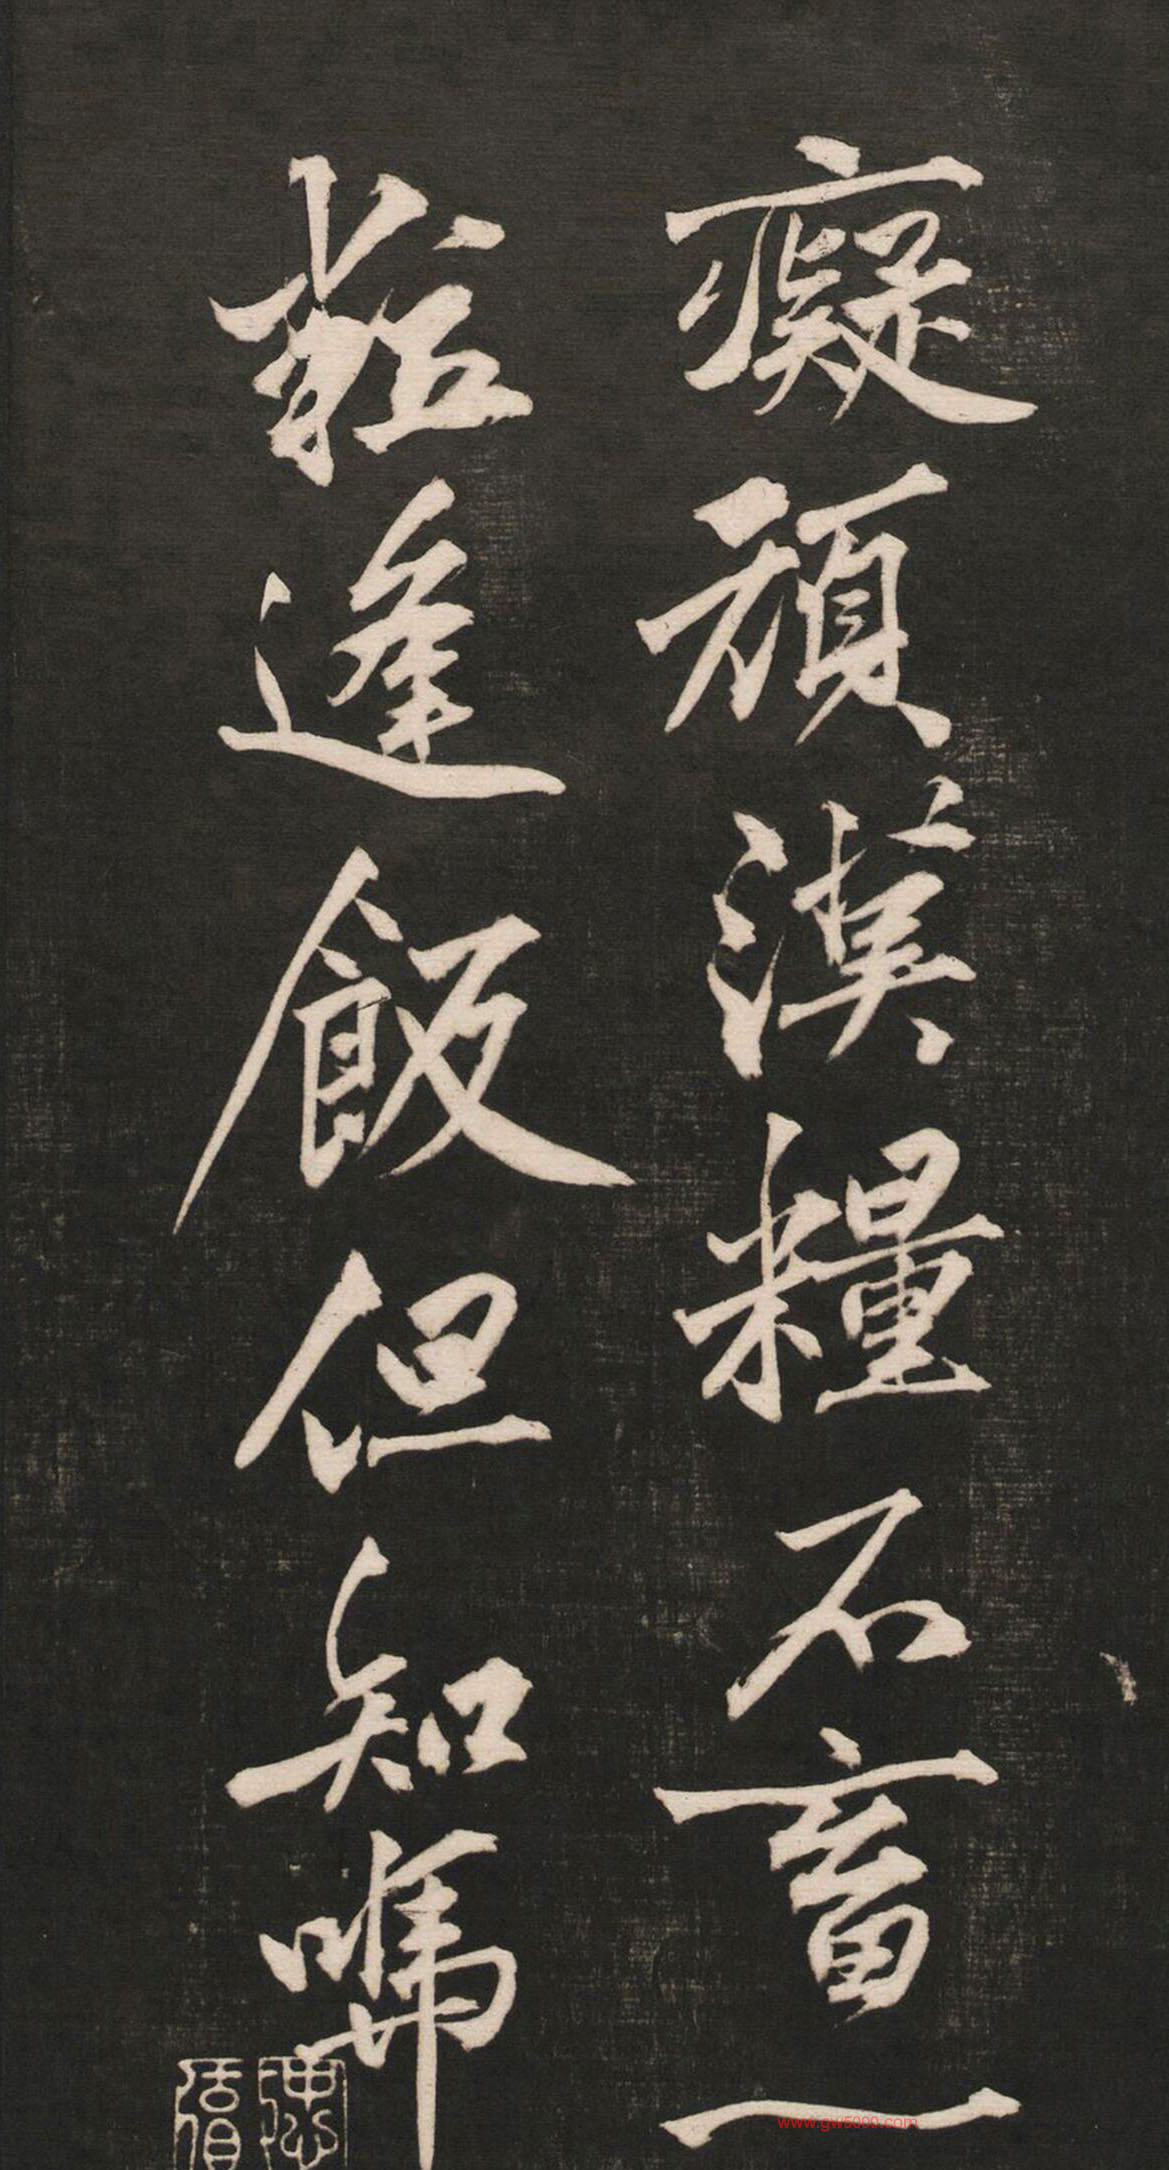 癡頑漢糧不畜一
粒逢飯但知
www.gw5000.com